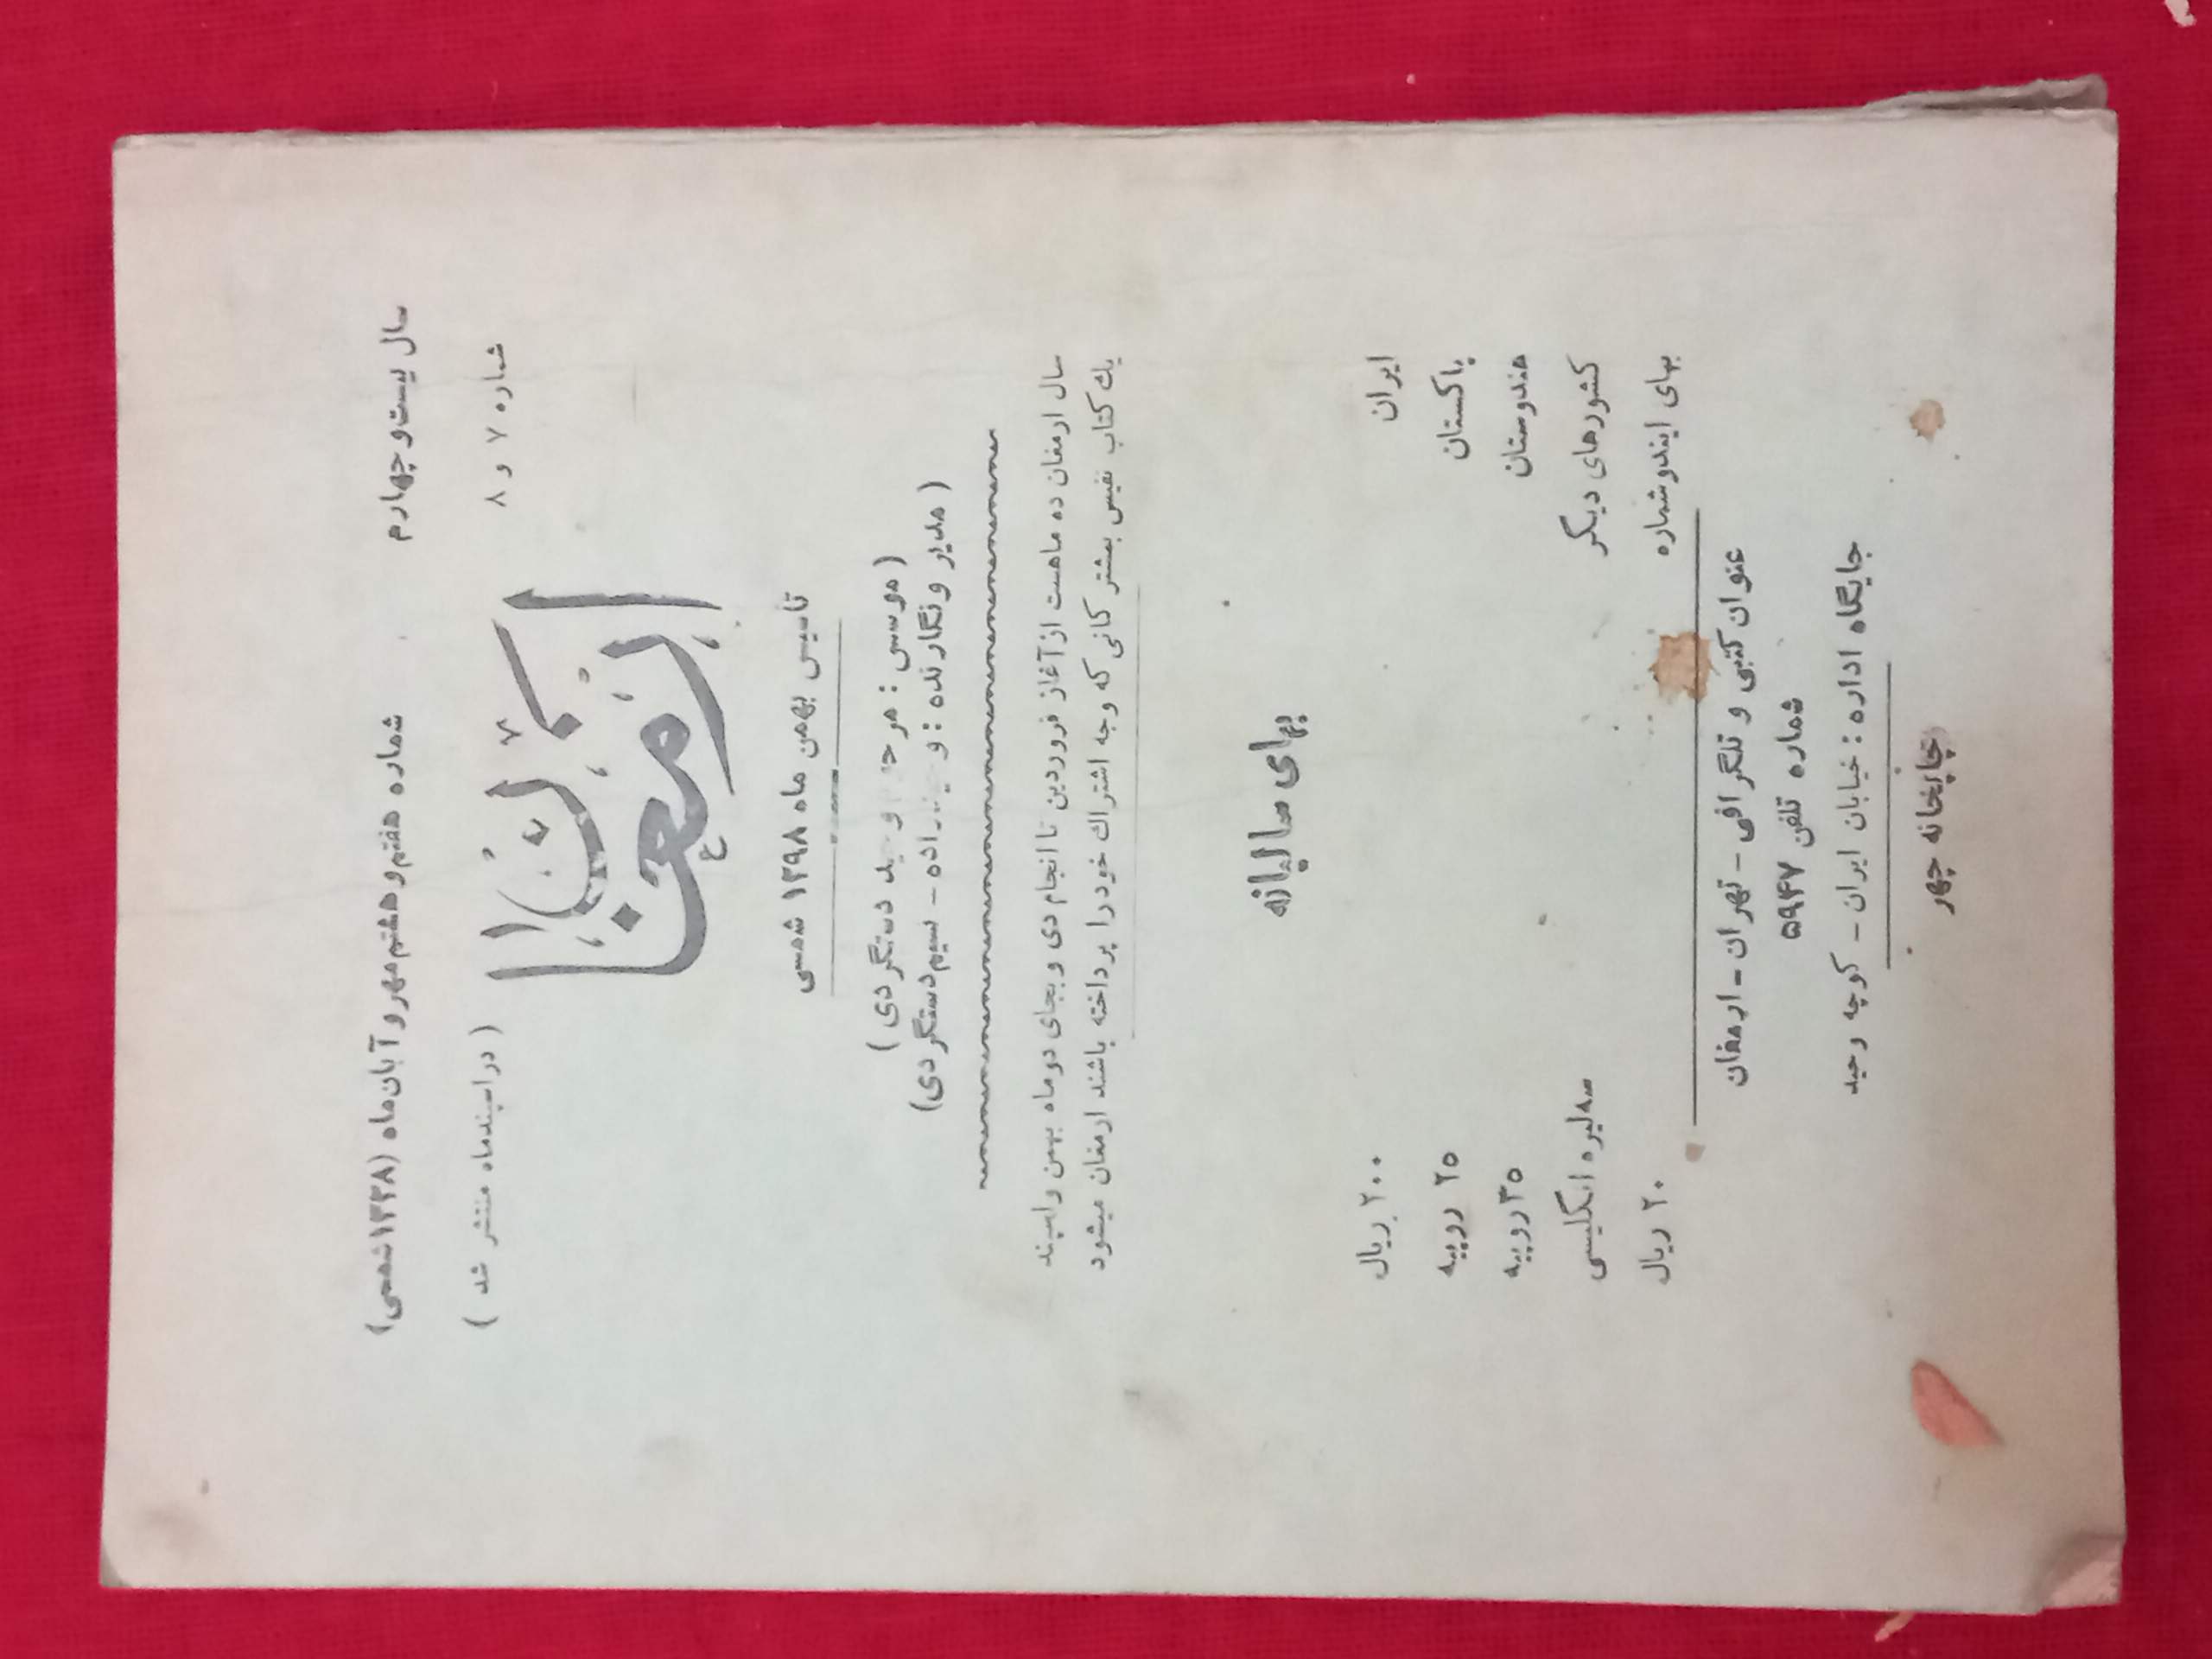 سال بیست و چهارم شماره هفتم و هشتم مهر و آبان ماه (۱۳۳۸ شمسی)
شماره ۷ و ۸ (در اسپندماه منتشر شد)
ارمغان
تاسیس بهمن ماه ۱۲۹۸ شمسی
(موسس: مرحوم وحید دستگردی)
(مدیر و نگارنده: وحیدزاده - نسیم دستگردی)
سال ارمغان ده ماهست از آغاز فروردین تا انجام دی و بجای دو ماه بهمن و اسپند
یك کتاب نفیس بمشتر کانی که وجه اشتراك خود را پرداخته باشند ارمغان میشود
بهای سالیانه
ایران ۲۰۰ ریال
پاکستان ۲۵ روپیه
هندوستان ۳۵ روپیه
کشورهای دیگر سه لیره انگلیسی
بهای ایندو شماره ۲۰ ریال
عنوان کتبی و تلگرافی - تهران - ارمغان
شماره تلفن ۵۹۴۴۷
جایگاه اداره: خیابان ایران - کوچه وحید
چاپخانه چهر